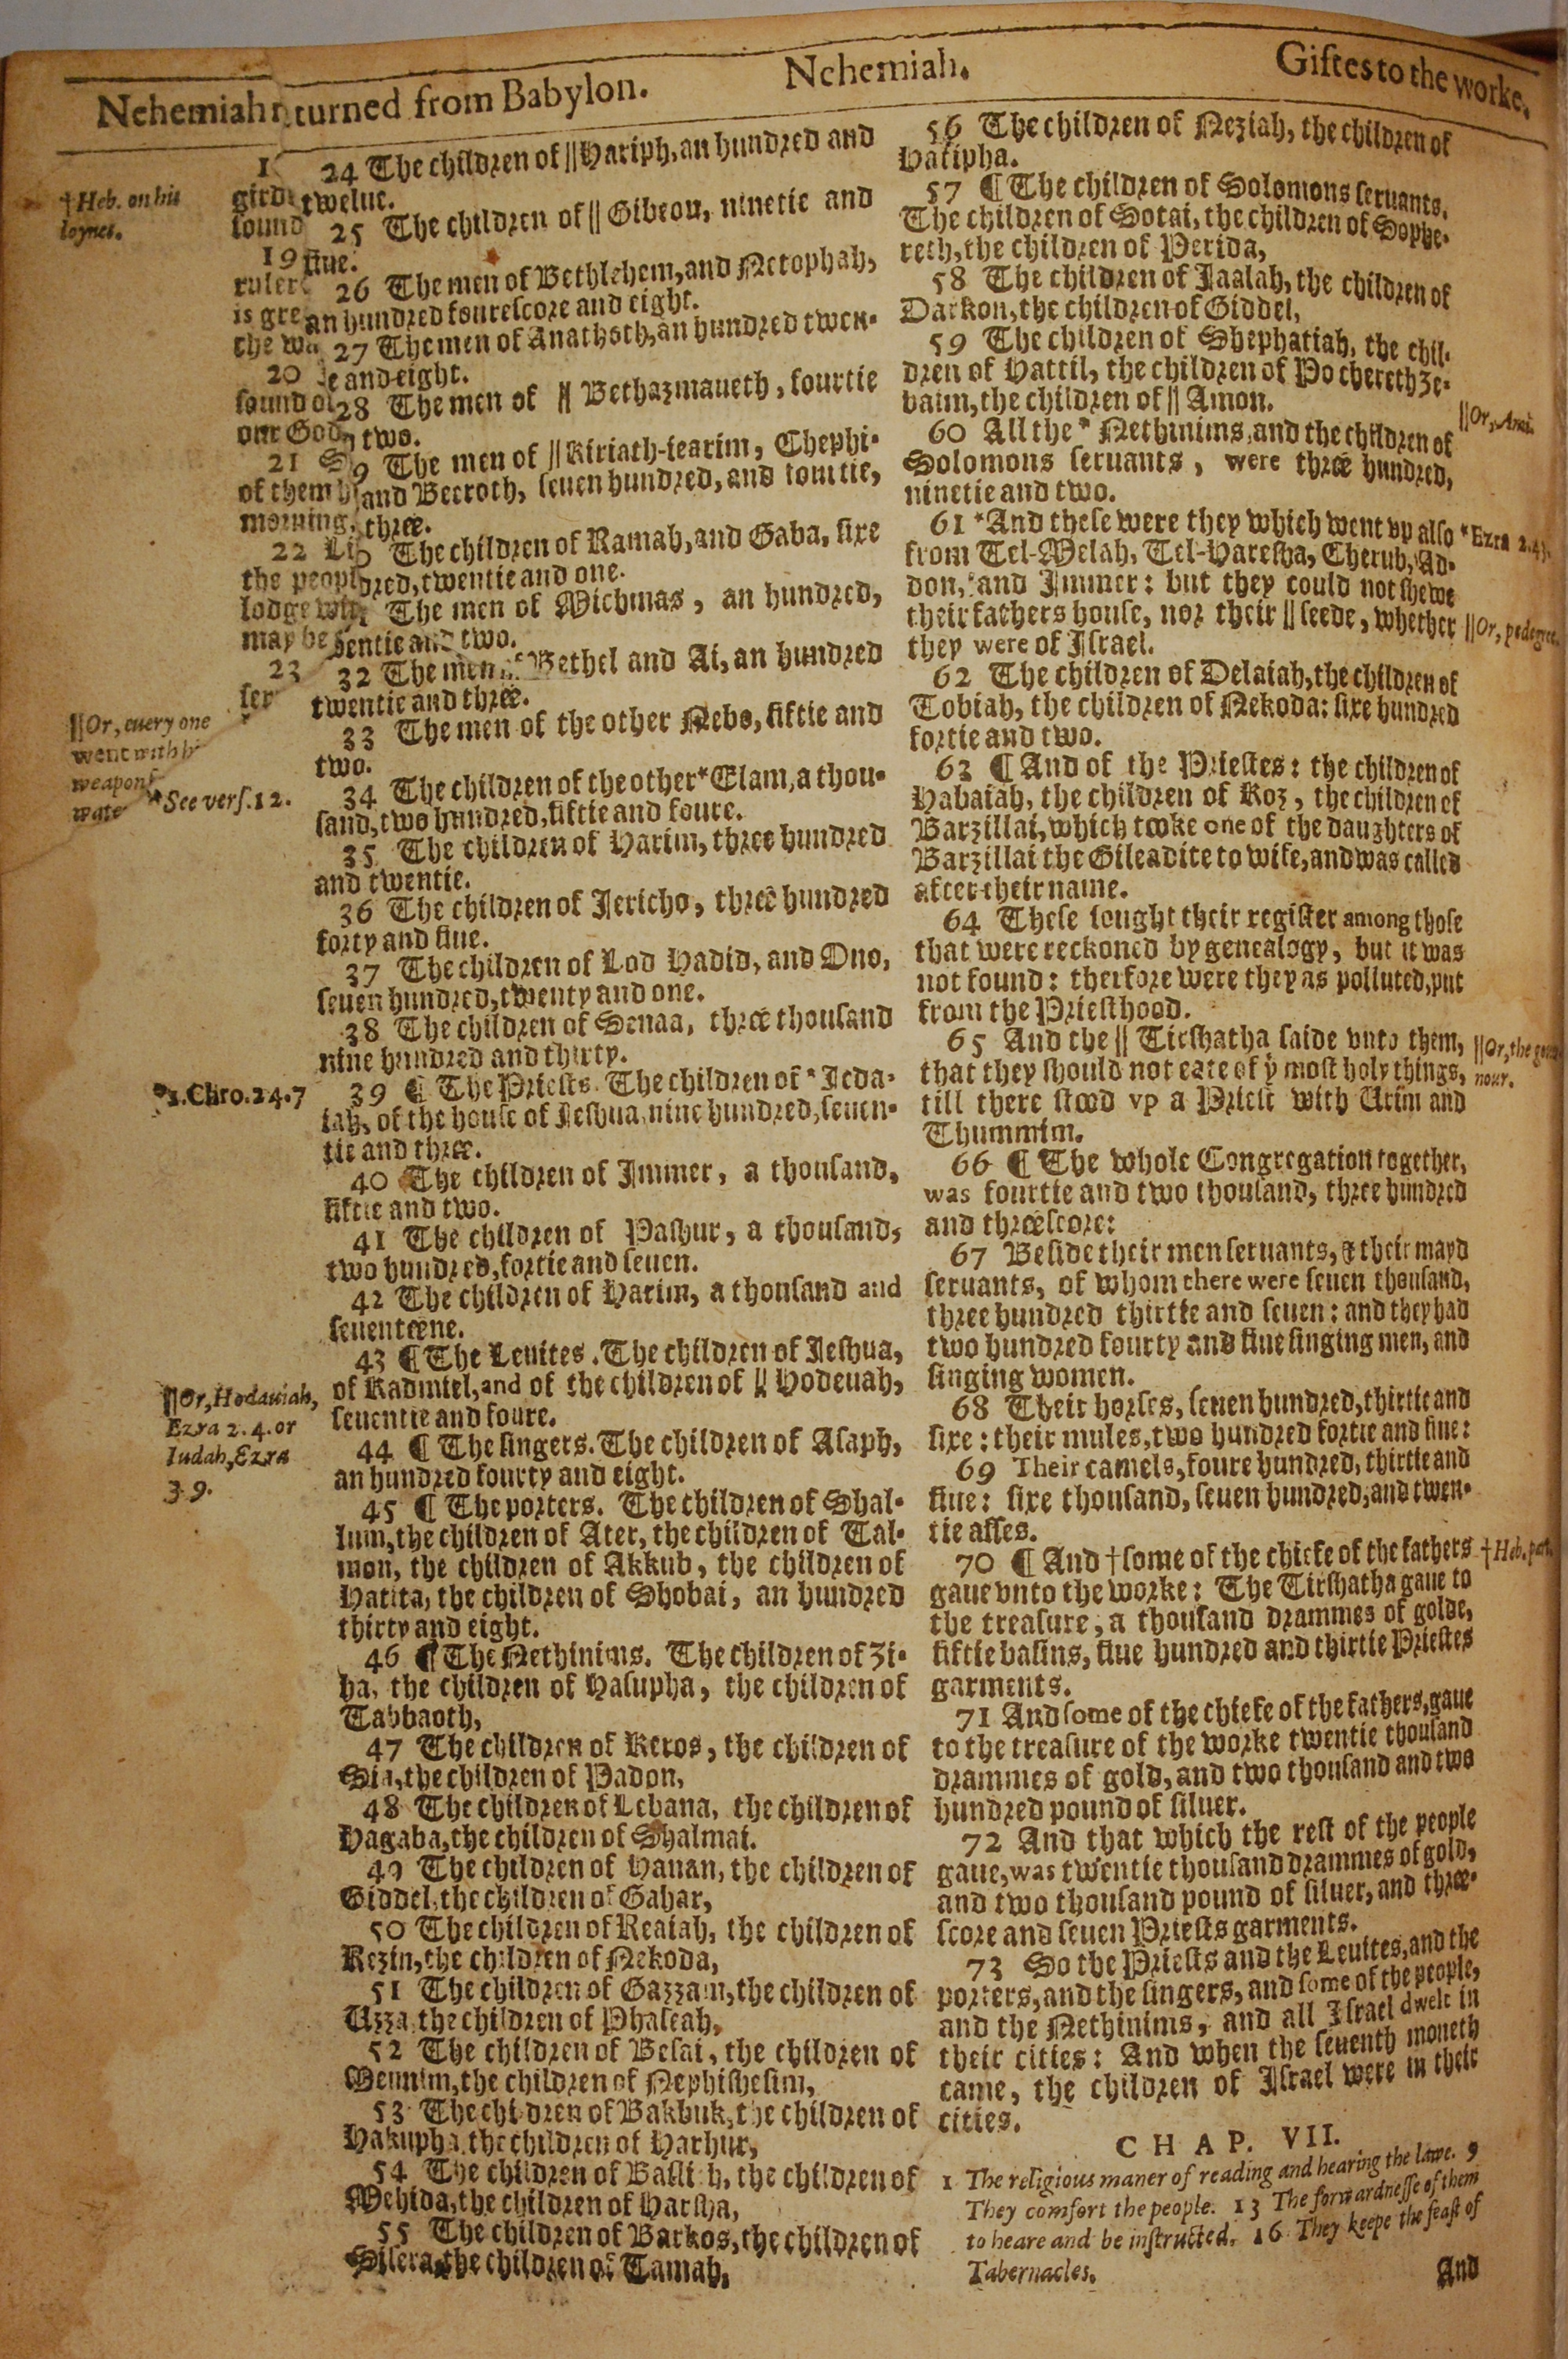 Nehemiah r turned from Babylon. Nehemiah. Giftes to the worke.
† Heb. on his
loynes.
gird
sound
19
ruler
is gre
the wa
20
sound
our God
21
of them
morning,
22
the peopl
lodge with
may be
23
ser
|| Or, euery one
went with hi
weapon
wate
24 The children of || Hariph, an hundred and
twelue.
25 The children of || Gibeon, ninetie and
fiue.
26 The men of Bethlehem, and Netophah,
an hundred fourescore and eight.
27 The men of Anathoth, an hundred twen-
ie and eight.
28 The men of || Bethazmaueth, fourtie
two.
9 The men of || Kiriath-iearim, Chephi-
and Beeroth, seuen hundred, and fourtie,
three.
The children of Ramah, and Gaba, sixe
dred, twentie and one.
The men of Michmas, an hundred,
entie and two.
32 The men Bethel and Ai, an hundred
twentie and three.
33 The men of the other Nebo, fiftie and
two.
* See vers. 12.
34 The children of the other * Elam, a thou-
sand, two hundred, fiftie and foure.
35 The children of Harim, three hundred
and twentie.
36 The children of Iericho, three hundred
forty and fiue.
37 The children of Lod Hadid, and Ono,
seuen hundred, twenty and one.
38 The children of Senaa, three thousand
nine hundred and thirty.
* 1. Chro. 24. 7
39 ¶ The Priests. The children of * Ieda-
iah, of the house of Ieshua nine hundred, seuen-
tie and three.
40 The children of Immer, a thousand,
fiftie and two.
41 The children of Pashur, a thousand,
two hundred, fortie and seuen.
42 The children of Harim, a thousand and
seuenteene.
43 ¶ The Leuites. The children of Ieshua,
of Kadmiel, and of the children of || Hodeuah,
seuentie and foure.
|| Or, Hodauiah,
Ezra 2. 4. or
Iudah, Ezra
3. 9.
44 ¶ The singers. The children of Asaph,
an hundred fourty and eight.
45 ¶ The porters. The children of Shal-
lum, the children of Ater, the children of Tal-
mon, the children of Akkub, the children of
Hatita, the children of Shobai, an hundred
thirty and eight.
46 ¶ The Nethinims. The children of Zi-
ha, the children of Hasupha, the children of
Tabbaoth,
47 The children of Keros, the children of
Sia, the children of Padon,
48 The children of Lebana, the children of
Hagaba, the children of Shalmai.
49 The children of Hanan, the children of
Giddel, the children of Gahar,
50 The children of Reaiah, the children of
Rezin, the children of Nekoda,
51 The children of Gazzam, the children of
Uzza, the children of Phaseah,
52 The children of Besai, the children of
Meunim, the children of Nephishesim,
53 The children of Bakbuk, the children of
Hakupha, the children of Harhur,
54 The children of Baslith, the children of
Mehida, the children of Harsha,
55 The children of Barkos, the children of
Sisera, the children of Tamah,
56 The children of Neziah, the children of
Hatipha.
57 ¶ The children of Solomons seruants.
The children of Sotai, the children of Sophe-
reth, the children of Perida,
58 The children of Iaalah, the children of
Darkon, the children of Giddel,
59 The children of Shephatiah, the chil-
dren of Hattil, the children of Pochereth Ze-
baim, the children of || Amon.
|| Or, Ami.
60 All the * Nethinims, and the children of
Solomons seruants, were three hundred,
ninetie and two.
61 * And these were they which went vp also
from Tel-Melah, Tel-Haresha, Cherub, Ad-
don, and Immer: but they could not shewe
their fathers house, nor their || seede, whether
they were of Israel.
* Ezra 2.
|| Or, pedegree.
62 The children of Delaiah, the children of
Tobiah, the children of Nekoda: sixe hundred
fortie and two.
63 ¶ And of the Priestes: the children of
Habaiah, the children of Koz, the children of
Barzillai, which tooke one of the daughters of
Barzillai the Gileadite to wife, and was called
after their name.
64 These sought their register among those
that were reckoned by genealogy, but it was
not found: therfore were they as polluted, put
from the Priesthood.
65 And the || Tirshatha saide vnto them,
that they should not eate of yͤ most holy things,
till there stood vp a Priest with Urim and
Thummim.
|| Or, the
nour.
66 ¶ The whole Congregation together,
was fourtie and two thousand, three hundred
and threescore:
67 Beside their men seruants, & their mayd
seruants, of whom there were seuen thousand,
three hundred thirtie and seuen: and they had
two hundred fourty and fiue singing men, and
singing women.
68 Their horses, seuen hundred, thirtie and
sixe: their mules, two hundred fortie and fiue:
69 Their camels, foure hundred, thirtie and
fiue: sixe thousand, seuen hundred, and twen-
tie asses.
70 ¶ And † some of the chiefe of the fathers
gaue vnto the worke: The Tirshatha gaue to
the treasure, a thousand drammes of golde,
fiftie basins, fiue hundred and thirtie Priestes
garments.
† Heb. part.
71 And some of the chiefe of the fathers, gaue
to the treasure of the worke twentie thousand
drammes of gold, and two thousand and two
hundred pound of siluer.
72 And that which the rest of the people
gaue, was twentie thousand drammes of gold,
and two thousand pound of siluer, and three-
score and seuen Priests garments.
73 So the Priests and the Leuites, and the
porters, and the singers, and some of the people,
and the Nethinims, and all Israel dwelt in
their cities: And when the seuenth moneth
came, the children of Israel were in their
cities.
CHAP. VII.
1 The religious maner of reading and hearing the lawe. 9
They comfort the people. 13 The forwardnesse of them
to heare and be instructed. 16 They keepe the feast of
Tabernacles.
And